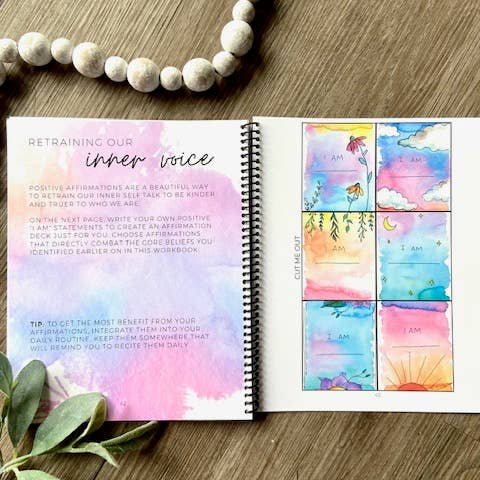 RETRAINING OUR
inner voice
POSITIVE AFFIRMATIONS ARE A BEAUTIFUL WAY
TO RETRAIN OUR INNER SELF TALK TO BE KINDER
AND TRUER TO WHO WE ARE.
ON THE NEXT PAGE, WRITE YOUR OWN POSITIVE
"I AM" STATEMENTS TO CREATE AN AFFIRMATION
DECK JUST FOR YOU. CHOOSE AFFIRMATIONS
THAT DIRECTLY COMBAT THE CORE BELIEFS YOU
IDENTIFIED EARLIER ON IN THIS WORKBOOK.
TIP: TO GET THE MOST BENEFIT FROM YOUR
AFFIRMATIONS, INTEGRATE THEM INTO YOUR
DAILY ROUTINE. KEEP THEM SOMEWHERE THAT
WILL REMIND YOU TO RECITE THEM DAILY.
42
CUT ME OUT
I AM
I AM
I AM
I AM
I AM
I AM